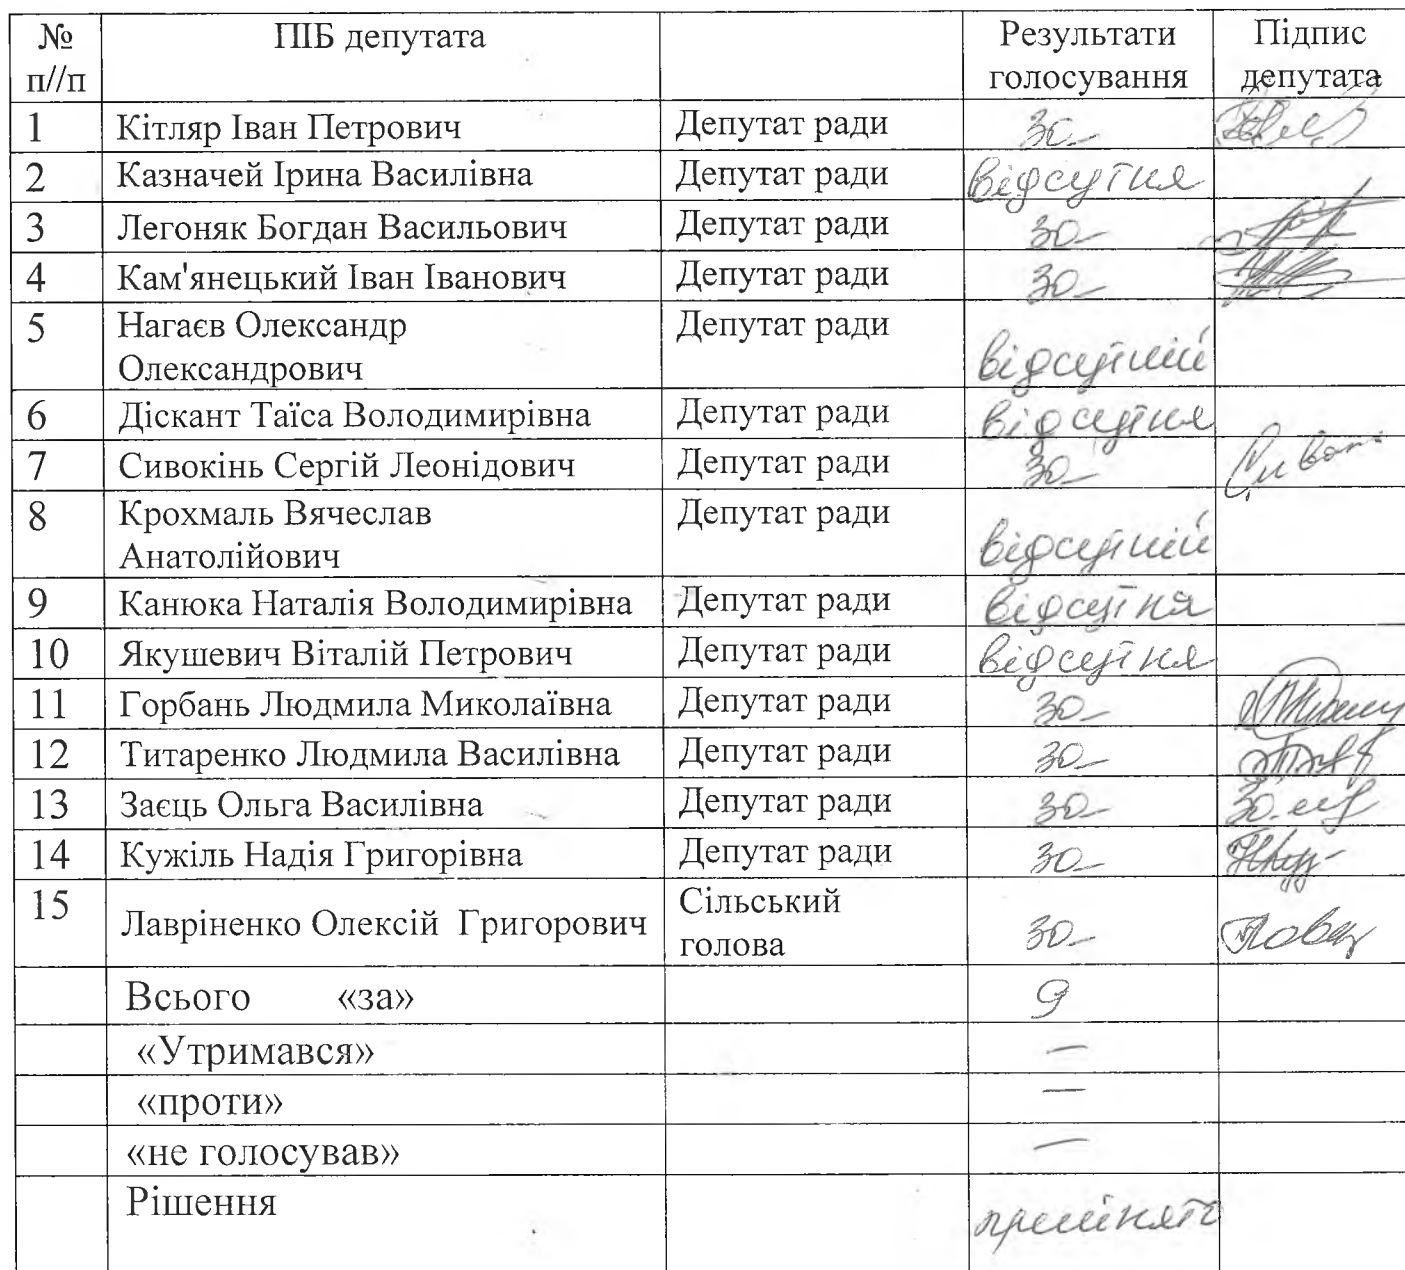 № ПІБ депутата Результати Підпис
п//п голосування депутата
1 Кітляр Іван Петрович Депутат ради за
2 Казначей Ірина Василівна Депутат ради відсутня
3 Легоняк Богдан Васильович Депутат ради за
4 Кам'янецький Іван Іванович Депутат ради за
5 Нагаєв Олександр Депутат ради
Олександрович відсутній
6 Діскант Таїса Володимирівна Депутат ради відсутня
7 Сивокінь Сергій Леонідович Депутат ради за
8 Крохмаль Вячеслав Депутат ради
Анатолійович відсутній
9 Канюка Наталія Володимирівна Депутат ради відсутня
10 Якушевич Віталій Петрович Депутат ради відсутня
11 Горбань Людмила Миколаївна Депутат ради за
12 Титаренко Людмила Василівна Депутат ради за
13 Заєць Ольга Василівна Депутат ради за
14 Кужіль Надія Григорівна Депутат ради за
15 Лавріненко Олексій Григорович Сільський
голова за
Всього «за» 9
«Утримався» —
«проти» —
«не голосував» —
Рішення прийнято